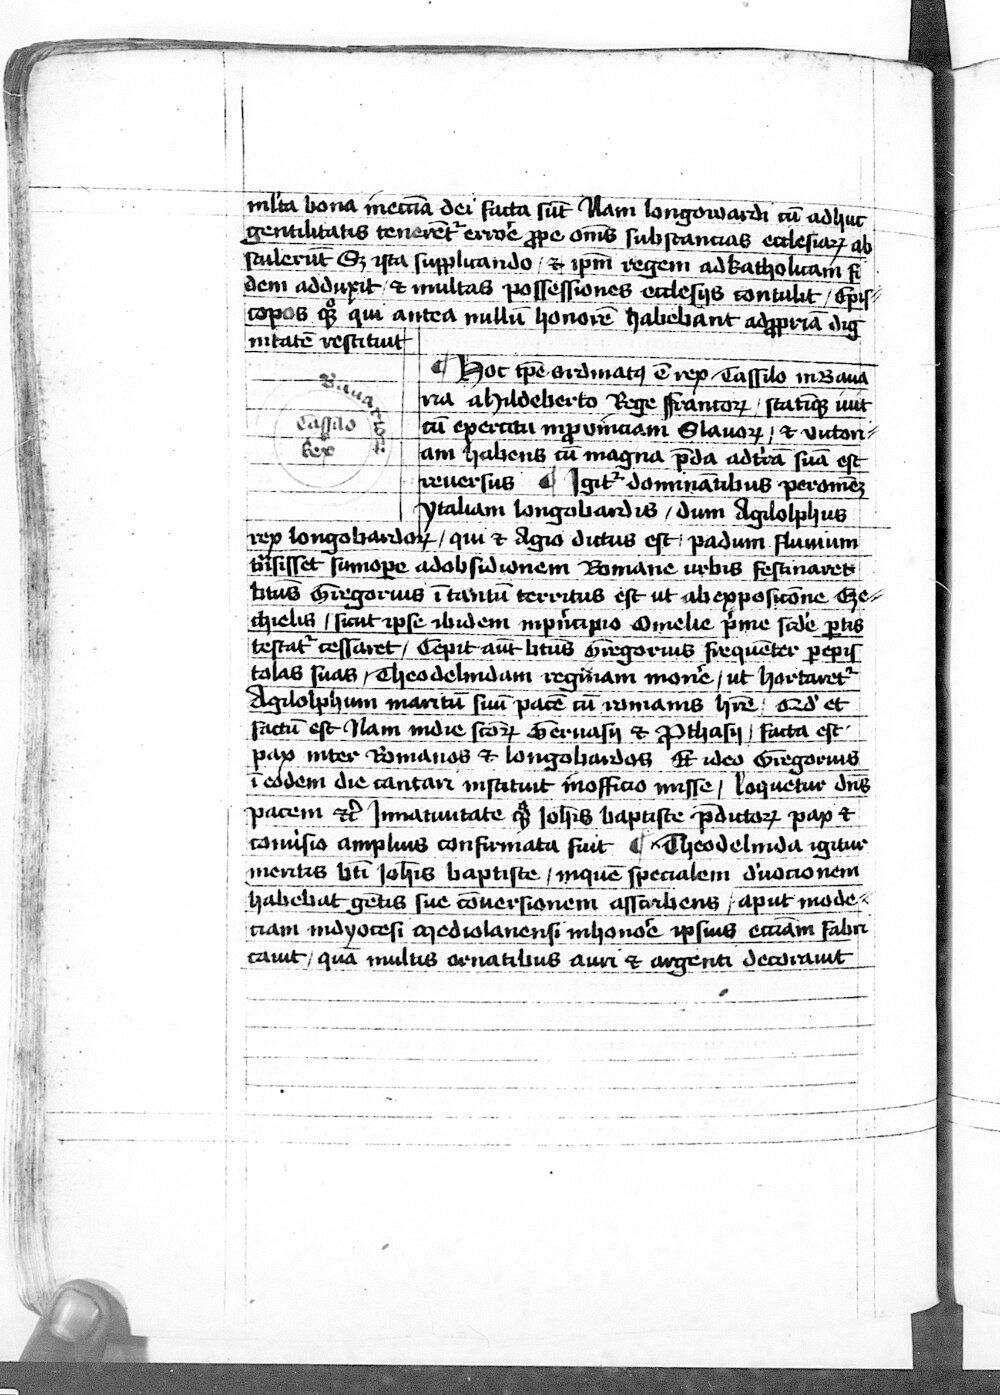 ml'ta bona ineccīa dei facta sūt Nam longowardi cū adhuc
gentilitatis tenerēt᷑ errore ꝓpe om̄s substancias ecclesiaꝝ ab
stulerūt Sꝫ ista supplicando / ⁊ ip̄m regem adkatholicam fi
dem adduxit / ⁊ multas possessiones ecclesijs contulit / Ep̄is⸗
copos qꝫ qui antea nullū honorē habebant adꝓpriā dig
nitatē restituit
¶ Hoc tp̄e ordinatꝯ ē rex Tassilo inBaua
ria ahildeberto Rege ffrancoꝝ / statimqꝫ iuit
cū exercitu inꝓvinciam Slavoꝝ / ⁊ victori⸗
am habens cū magna p̄da adt'rā suā est
reuersus ¶ Igit᷑ dominātibus peromēꝫ
ytaliam longobardis / dum Agilolphus
Bauarioꝝ
Tassilo
Rex
rex longobardoꝝ / qui ⁊ Agio dictus est / padum fluuium
tn̄sisset sūmoꝑe adobsidionem Romane urbis festinaret
btūs Gregorius ī tantū territus est ut abexpositōne Eze⸗
chielis / sicut ipse ibidem inpⁱncipio Omelie pⁱme scd̄e ꝑtis
testat᷑ cessaret / Cepit aūt btūs Gregorius frequēter ꝑepis
tolas suas / Theodelindam reginam monē'e / ut hortaret᷑
Agilolphum maritū suū pacē cū romanis hr̄e / Qd' et
factū est Nam indie sctōꝝ Geruasij ⁊ Ꝓthasij / facta est
pax inter Romanos ⁊ longobardos Et ideo Gregorius
ī eodem die cantari instituit inofficio misse / loquetur dn̄s
pacem ⁊c̄ Innatiuitate qꝫ Joh̄is baptiste p̄dictoꝝ pax ⁊
cōuⁱsio amplius confirmata fuit ¶ Theodelinda igitur
meritis bt̄i Joh̄is baptiste / inquē specialem d'uocionem
habebat gētis sue cōversionem asscribens / aput mode⸗
ciam indyocesi mediolanensi inhonorē ipsius eccīam fabri
cauit / quā multis ornatibus auri ⁊ argenti decorauit